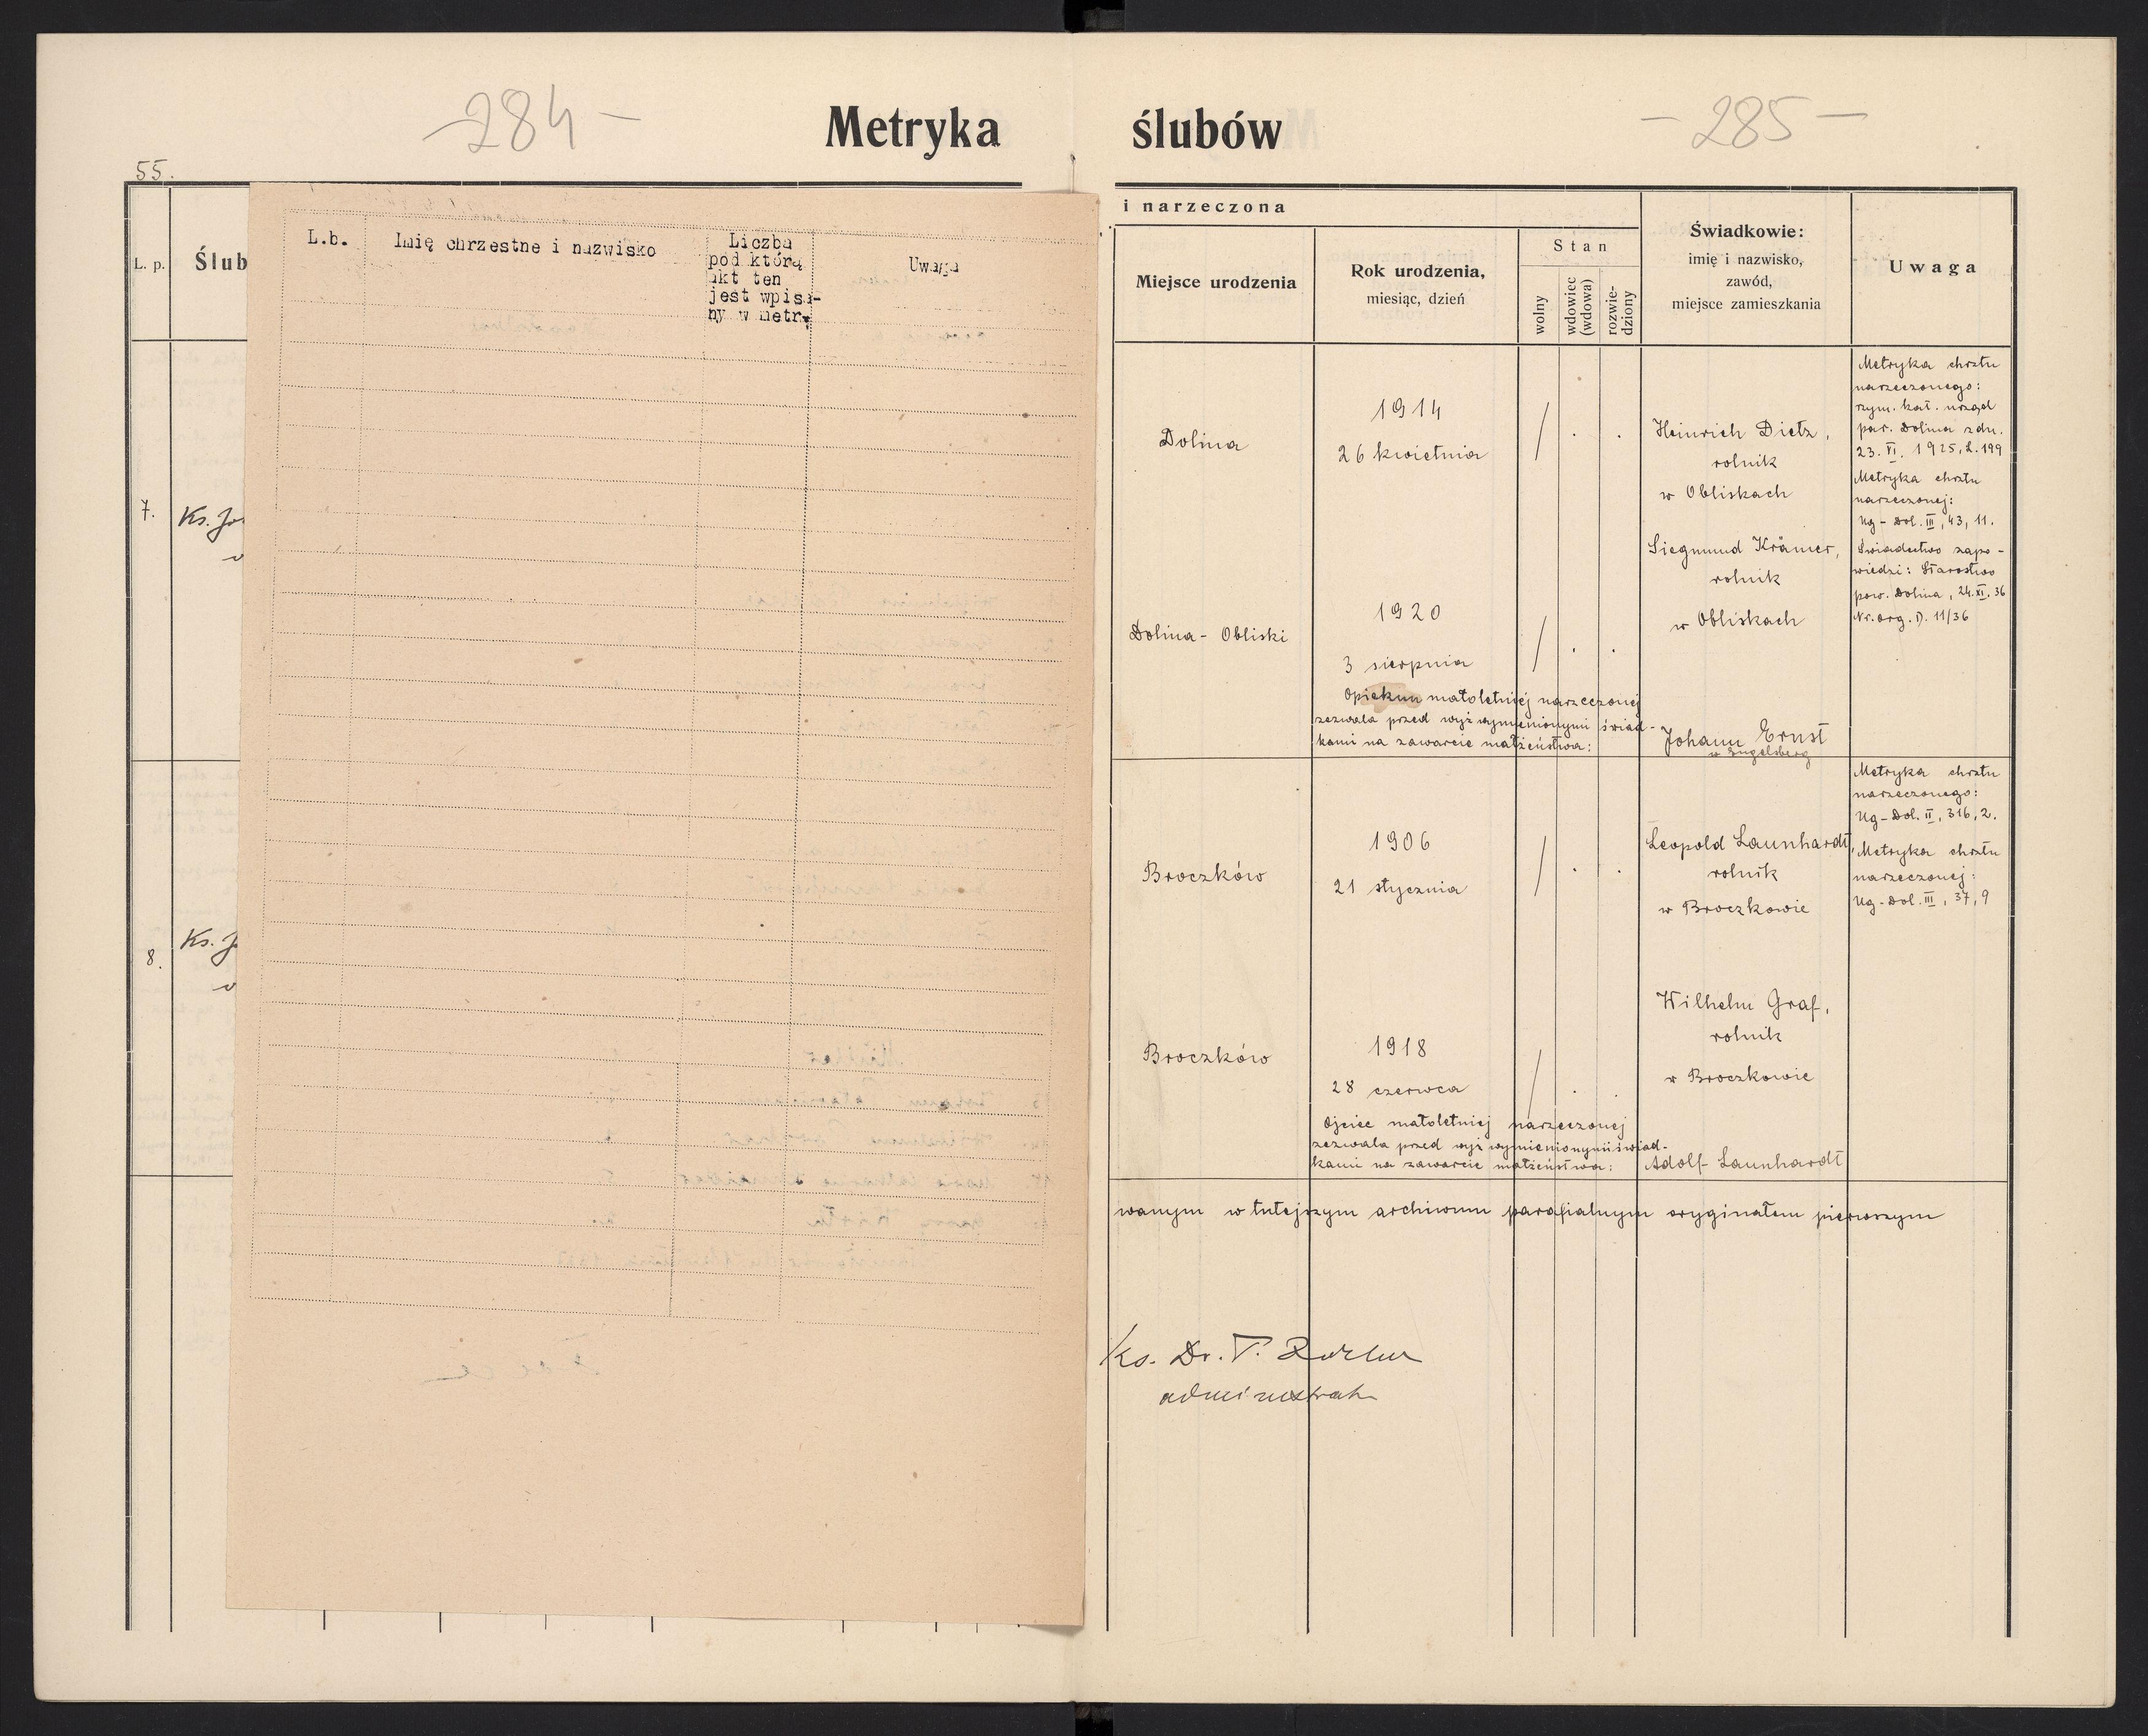 - 284 -
Metryka ślubów
- 285 -
55.
L. p.
Ślub
7.
Ks. Jo
8.
Ks. J
L.b.
Imię chrzestne i nazwisko
Liczba
pod którą
akt ten
jest wpisa-
ny w metr.
Uwaga
i narzeczona
Miejsce urodzenia
Rok urodzenia,
miesiąc, dzień
Stan
wolny
wdowiec
(wdowa)
rozwie-
dziony
Świadkowie:
imię i nazwisko,
zawód,
miejsce zamieszkania
Uwaga
Dolina
1914
26 kwietnia
/ . .
Heinrich Dietz,
rolnik
w Obliskach
Siegmund Krämer,
rolnik
w Obliskach
Metryka chrztu
narzeczonego:
rzym. kat. urząd
par. Dolina z dn.
23. VI. 1925, L. 199
Metryka chrztu
narzeczonej:
Ug - Dol. III, 43, 11.
Świadectwo zapo-
wiedzi: Starostwo
pow. Dolina, 24. XI. 36
Nr. org. D. 11/36
Dolina - Obliski
1920
3 sierpnia
/ . .
Opiekun małoletniej narzeczonej
zezwala przed wyż wymienionymi świad-
kami na zawarcie małżeństwa:
Johann Ernst
w Engelsberg
Broczków
1906
21 stycznia
/ . .
Leopold Launhardt,
rolnik
w Broczkowie
Metryka chrztu
narzeczonego:
Ug - Dol. II, 316, 2.
Metryka chrztu
narzeczonej:
Ug - Dol. III, 37, 9
Wilhelm Graf,
rolnik
w Broczkowie
Broczków
1918
28 czerwca
/ . .
Ojciec małoletniej narzeczonej
zezwala przed wyż wymienionymi świad-
kami na zawarcie małżeństwa:
Adolf Launhardt
wanym w tutejszym archiwum parafialnym oryginałem pierwszym
Ks. Dr. T.
administrator